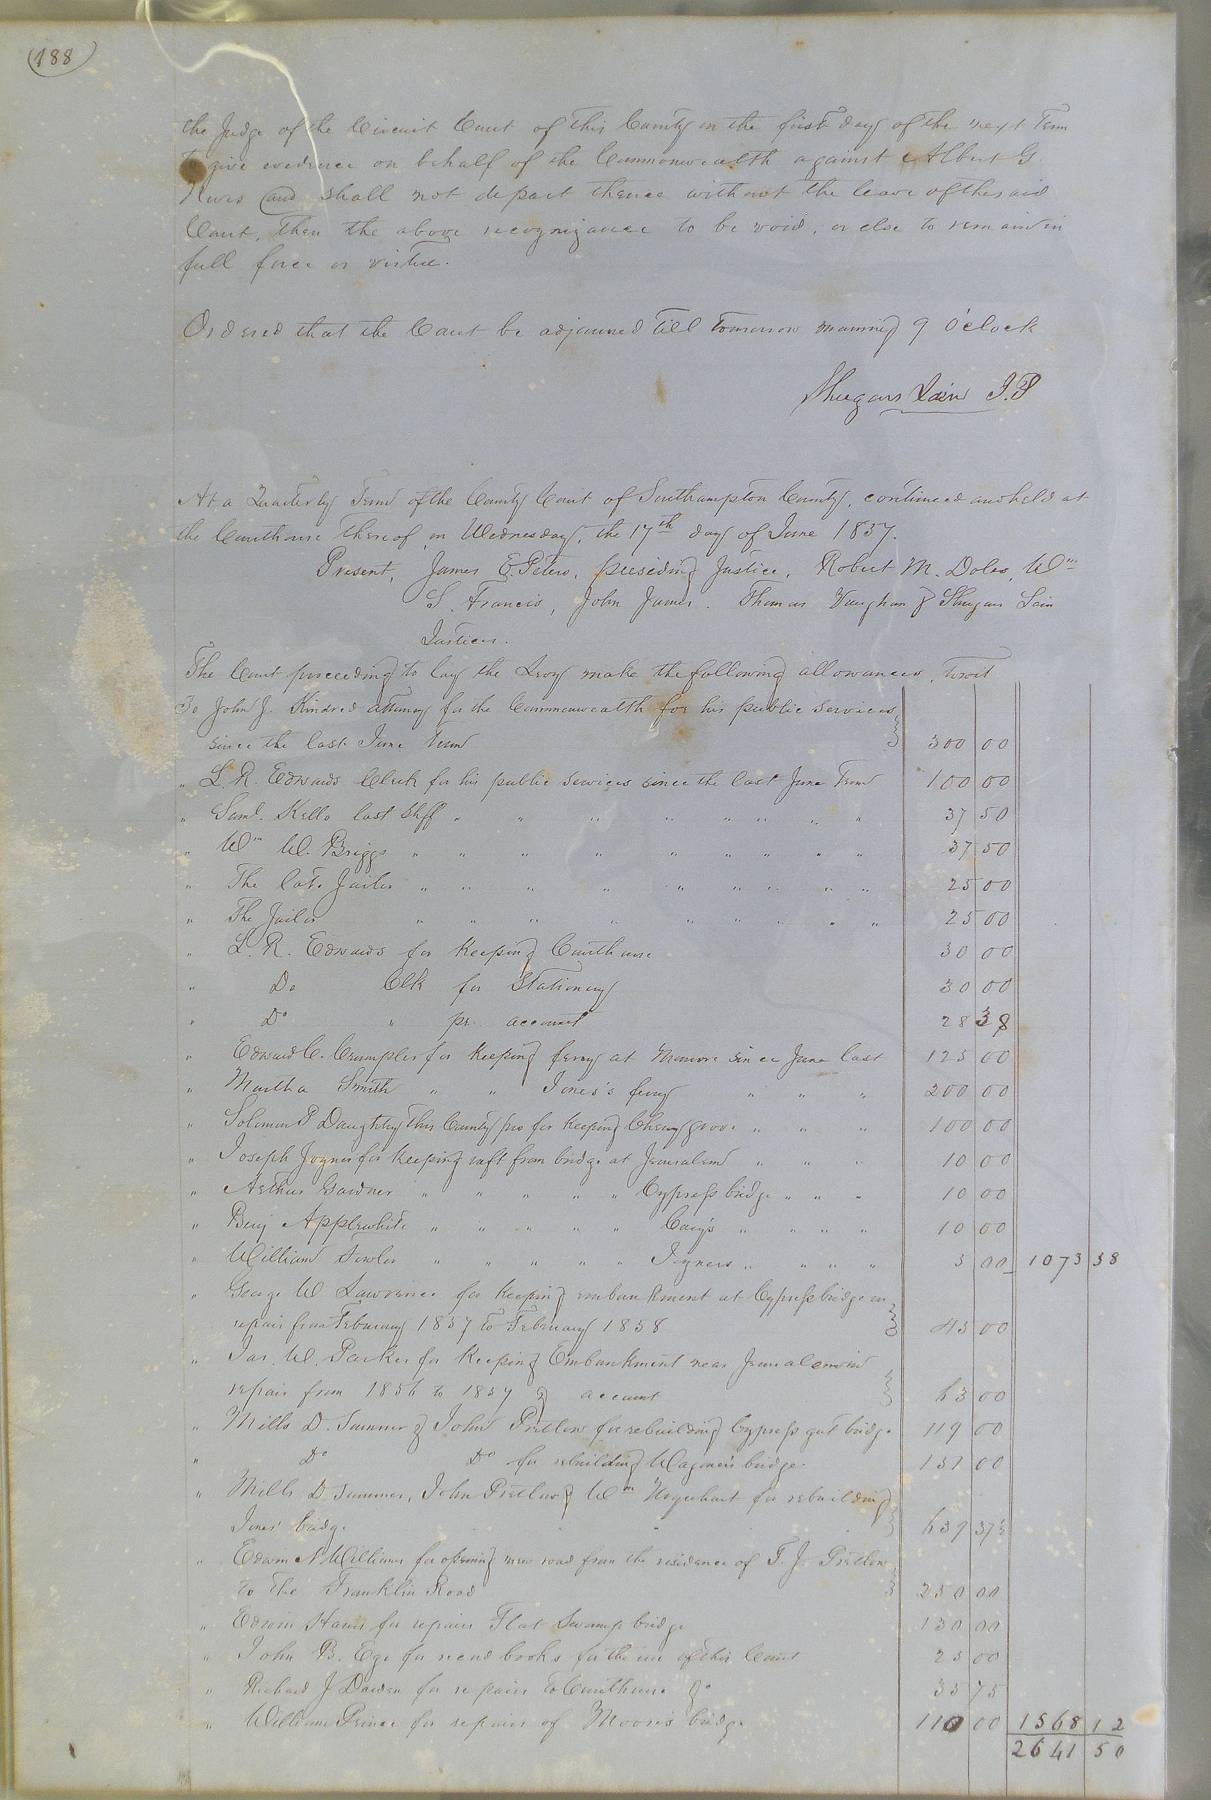 188
the Judge of the Circuit Court of this County on the first day of the next Term
to give evidence on behalf of the Commonwealth against Albert G.
and shall not depart thence without the leave of the said
Court, then the above recognizance to be void, or else to remain in
full force or virtue.
Ordered that the Court be adjourned till tomorrow morning 9 O'clock
Shugars Lain J.P
At a Quarterly Term of the County Court of Southampton County, continued and held at
the Courthouse thereof on Wednesday, the 17th day of June 1857.
Present, James E. Peters, presiding Justice, Robert M. Doles, Wm
S. Francis, John James, Thomas Vaughan & Shugars Lain
Justices.
The Court proceeding to lay the Levy make the following allowances, towit
To John J. Kindred attorney for the Commonwealth for his public services
since the last June Term 300 00
" L. R. Edwards Clerk for his public services since the last June Term 100 00
" Saml. Kello last Shff " " " " " " " " 37 50
" Wm W. Briggs " " " " " " " " " 37 50
" The late Jailor " " " " " " " " " 25 00
" The Jailor " " " " " " " " " 25 00
" L. R. Edwards for keeping Courthouse 30 00
" Do Clk for Stationery 30 00
" Do " pr. account 28 38
" Edward C. Crumpler for keeping ferry at Monroe since June last 125 00
" Martha Smith " " Jones's ferry " " " 200 00
" Solomon P Daughtry this County pro for keeping Cherry grove " " " 100 00
" Joseph Joyner for keeping raft from bridge at Jerusalem " " " 10 00
" Arthur Gardner " " " " " Cypress bridge " " " 10 00
" Benj Applewhite " " " " " Cary's " " " " 10 00
" William Fowler " " " " " Joyners " " " " 5 00 1073 38
" George W Lawrence for keeping embankment at Cypress bridge in
repair from February 1857 to February 1858 45 00
" Jas. W. Parker for keeping Embankment near Jerusalem in
repair from 1856 to 1857 & account 63 00
" Mills D. Sumner & John Pretlow for rebuilding Cypress gut bridge 119 00
" Do Do for rebuilding bridge 151 00
" Mills D. Sumner, John Pretlow & Wm Urquhart for rebuilding
Jones' bridge 639 37½
" Edwin N. Williams for opening new road from the residence of T. J. Pretlow
to the Franklin Road 250 00
" Edwin Harris for repairs Flat Swamp bridge 130 00
" John B. Ege for record books for the use of this Court 25 00
" Richard J Darden for repairs to Courthouse &c 35 75
" William Prince for repairs of Moore's bridge 110 00 1568 12
2641 50